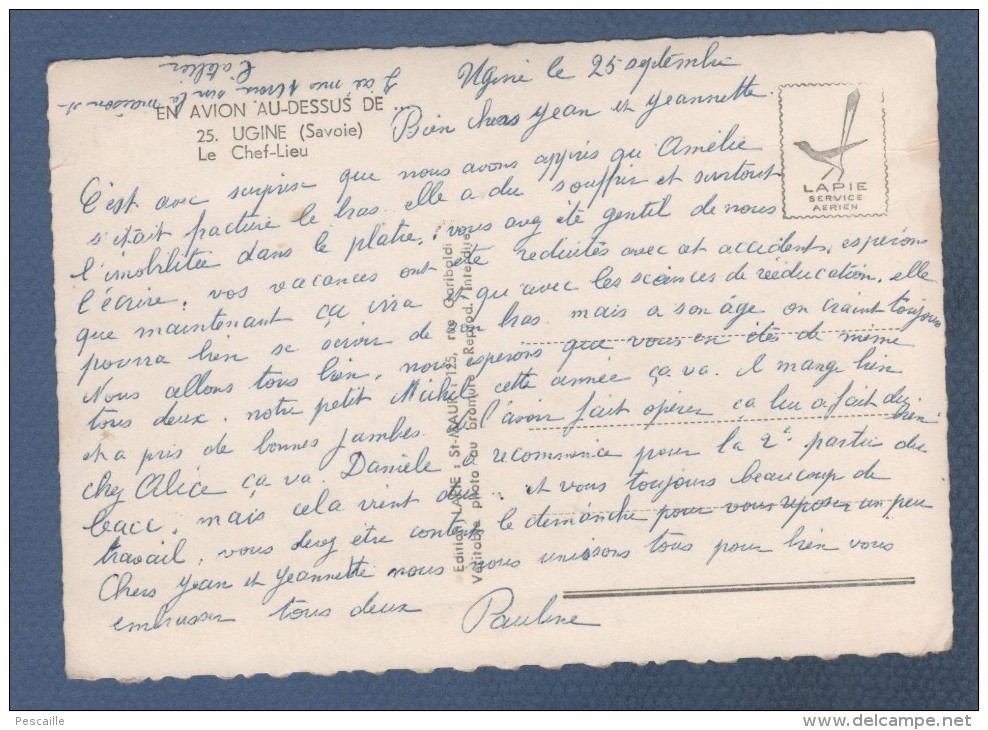 J'ai mis 1 croix sur la maison et
l'atelier
EN AVION AU-DESSUS DE ...
25. UGINE (Savoie)
Le Chef-Lieu
LAPIE
SERVICE
AERIEN
Ugine le 25 septembre
Bien chers Jean et Jeannette.
C'est avec surprise que nous avons appris qu'Amélie
s'était fracturé le bras. elle a du souffrir et surtout
l'imobilitée dans le platre, vous avez été gentil de nous
l'écrire, vos vacances ont été reduites avec cet accident. esperons
que maintenant ça vira et qu'avec les scéances de rééducation, elle
pourra bien se servir de son bras. mais a son âge, on craint toujours
Nous allons tous bien, nous esperons que vous en êtes de même
tous deux. notre petit Michel, cette année ça va. Il mange bien
et a pris de bonnes jambes. de l'avoir fait opérer ça lui a fait du bien
chez Alice ça va. Danièle a recommencé pour la 2e partie du
bacc, mais cela vient dur.. et vous toujours beaucoup de
travail, vous devez être contents le dimanche pour vous reposer un peu
Chers Jean et Jeannette nous nous unissons tous pour bien vous
embrasser tous deux
Pauline
Edition LAPIE : St-MAUR : 125, rue Garibaldi
Véritable photo au bromure - Reprod. Interdite
Pescaille
www.delcampe.net